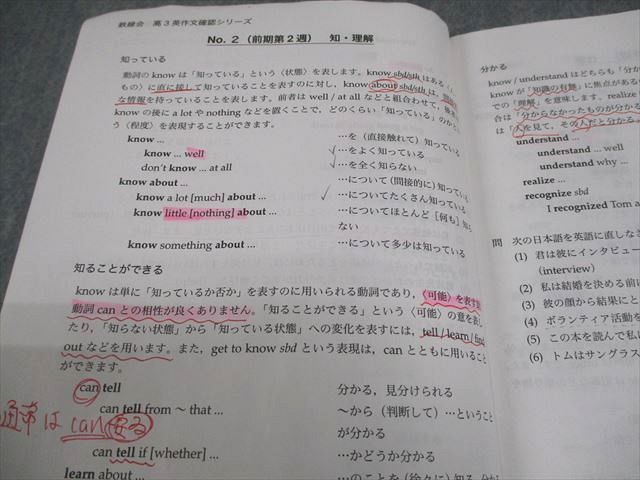 鉄緑会 高3英作文確認シリーズ
No. 2（前期第2週） 知・理解
知っている
動詞の know は「知っている」という〈状態〉を表します。know sbd/sth はある
もの〉に直に接して知っていることを表すのに対し、know about sbd/sth は、
な情報を持っていることを表します。前者は well / at all などと組合わせて、
know の後に a lot や nothing などを置くことで、どのくらい「知っている」のか
う〈程度〉を表現することができます。
know ... …を（直接触れて）知っている
know ... well …をよく知っている
don't know ... at all …を全く知らない
know about ... …について（間接的に）知っている
know a lot [much] about ... …についてたくさん知っている
know little [nothing] about ... …についてほとんど［何も］知ら
ない
know something about ... …について多少は知っている
知ることができる
know は単に「知っているか否か」を表すのに用いられる動詞であり，〈可能〉を表す
動詞 can との相性が良くありません。「知ることができる」という〈可能〉の意を表し
たり，「知らない状態」から「知っている状態」への変化を表すには，tell / learn / find
out などを用います。また，get to know sbd という表現は，can とともに用いること
ができます。
can tell 分かる，見分けられる
can tell from ～ that ... ～から（判断して）…ということ
が分かる
通常は can
can tell if [whether] ... …かどうか分かる
learn about ... …のことを（徐々に）知る，分か
分かる
know / understand はどちらも「分か
know が「知識の有無」に焦点がある
での「理解」を意味します。realize
合は「分からなかったものが分かる
は「人を見て，その人だと分かる
understand ...
understand ... well
understand why ...
realize ...
recognize sbd
I recognized Tom a
問 次の日本語を英語に直しなさ
(1) 君は彼にインタビュー
(interview)
(2) 私は結婚を決める前に
(3) 彼の顔から結果にと
(4) ボランティア活動を
(5) この本を読んで私に
(6) トムはサングラス